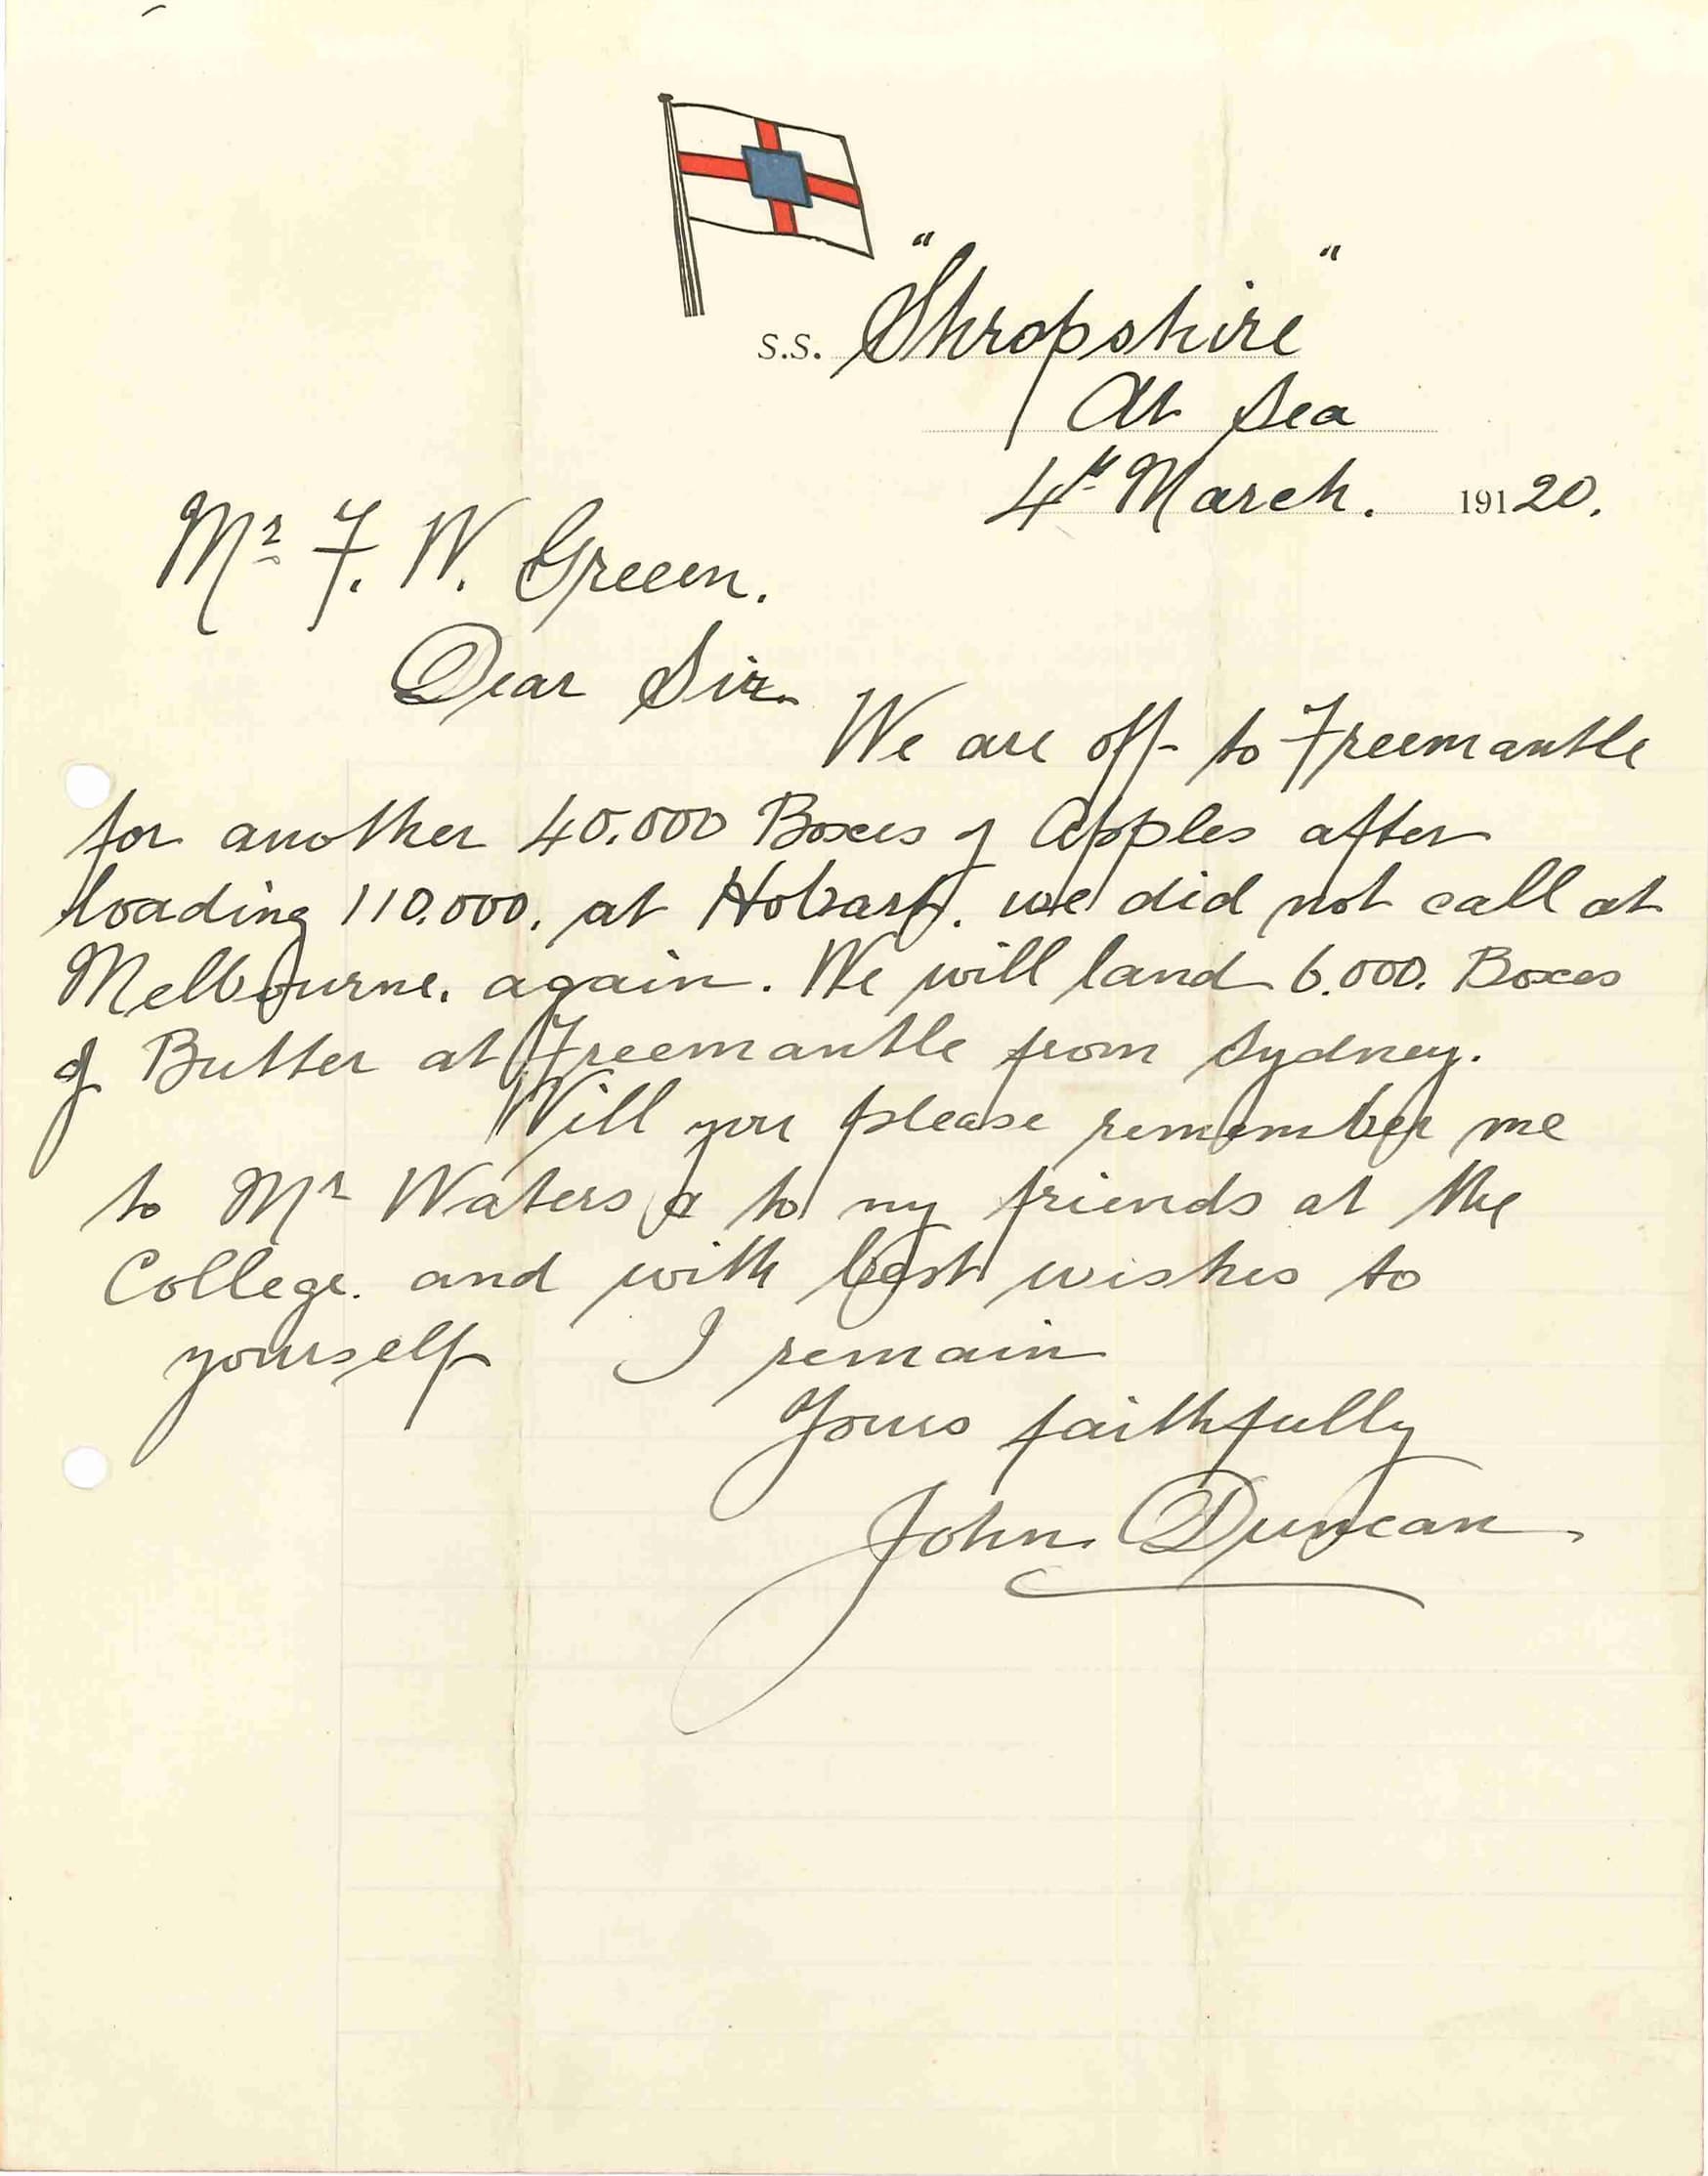 S.S. "Shropshire"
At Sea
4th March. 19120.
Mr F. W. Green.
Dear Sir.
We are off to Freemantle
for another 40.000 Boxes of Apples after
loading 110.000. at Hobart. we did not call at
Melbourne. again. We will land 6.000. Boxes
of Butter at Freemantle from Sydney.
Will you please remember me
to Mr Waters & to my friends at the
College. and with best wishes to
yourself I remain
Yours faithfully
John Duncan